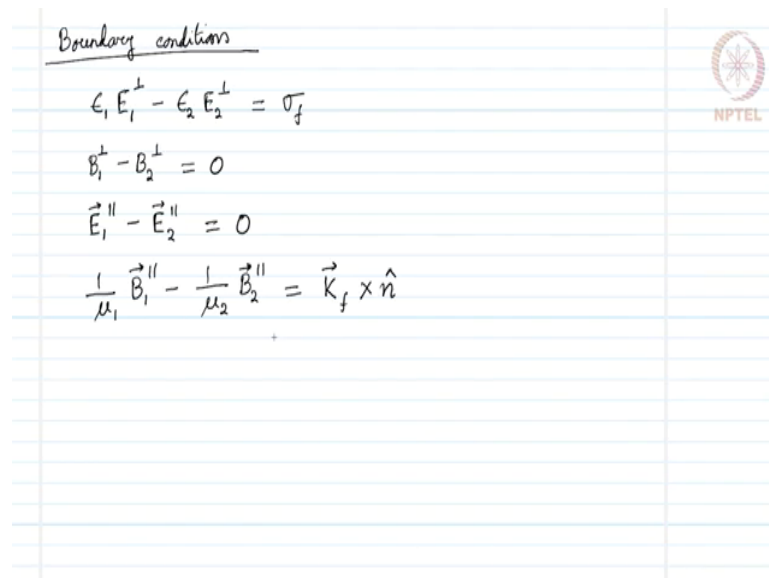 Boundary conditions
NPTEL
ϵ₁ E₁^⊥ − ϵ₂ E₂^⊥ = σ_f
B₁^⊥ − B₂^⊥ = 0
E⃗₁^∥ − E⃗₂^∥ = 0
1/μ₁ B⃗₁^∥ − 1/μ₂ B⃗₂^∥ = K⃗_f × n̂